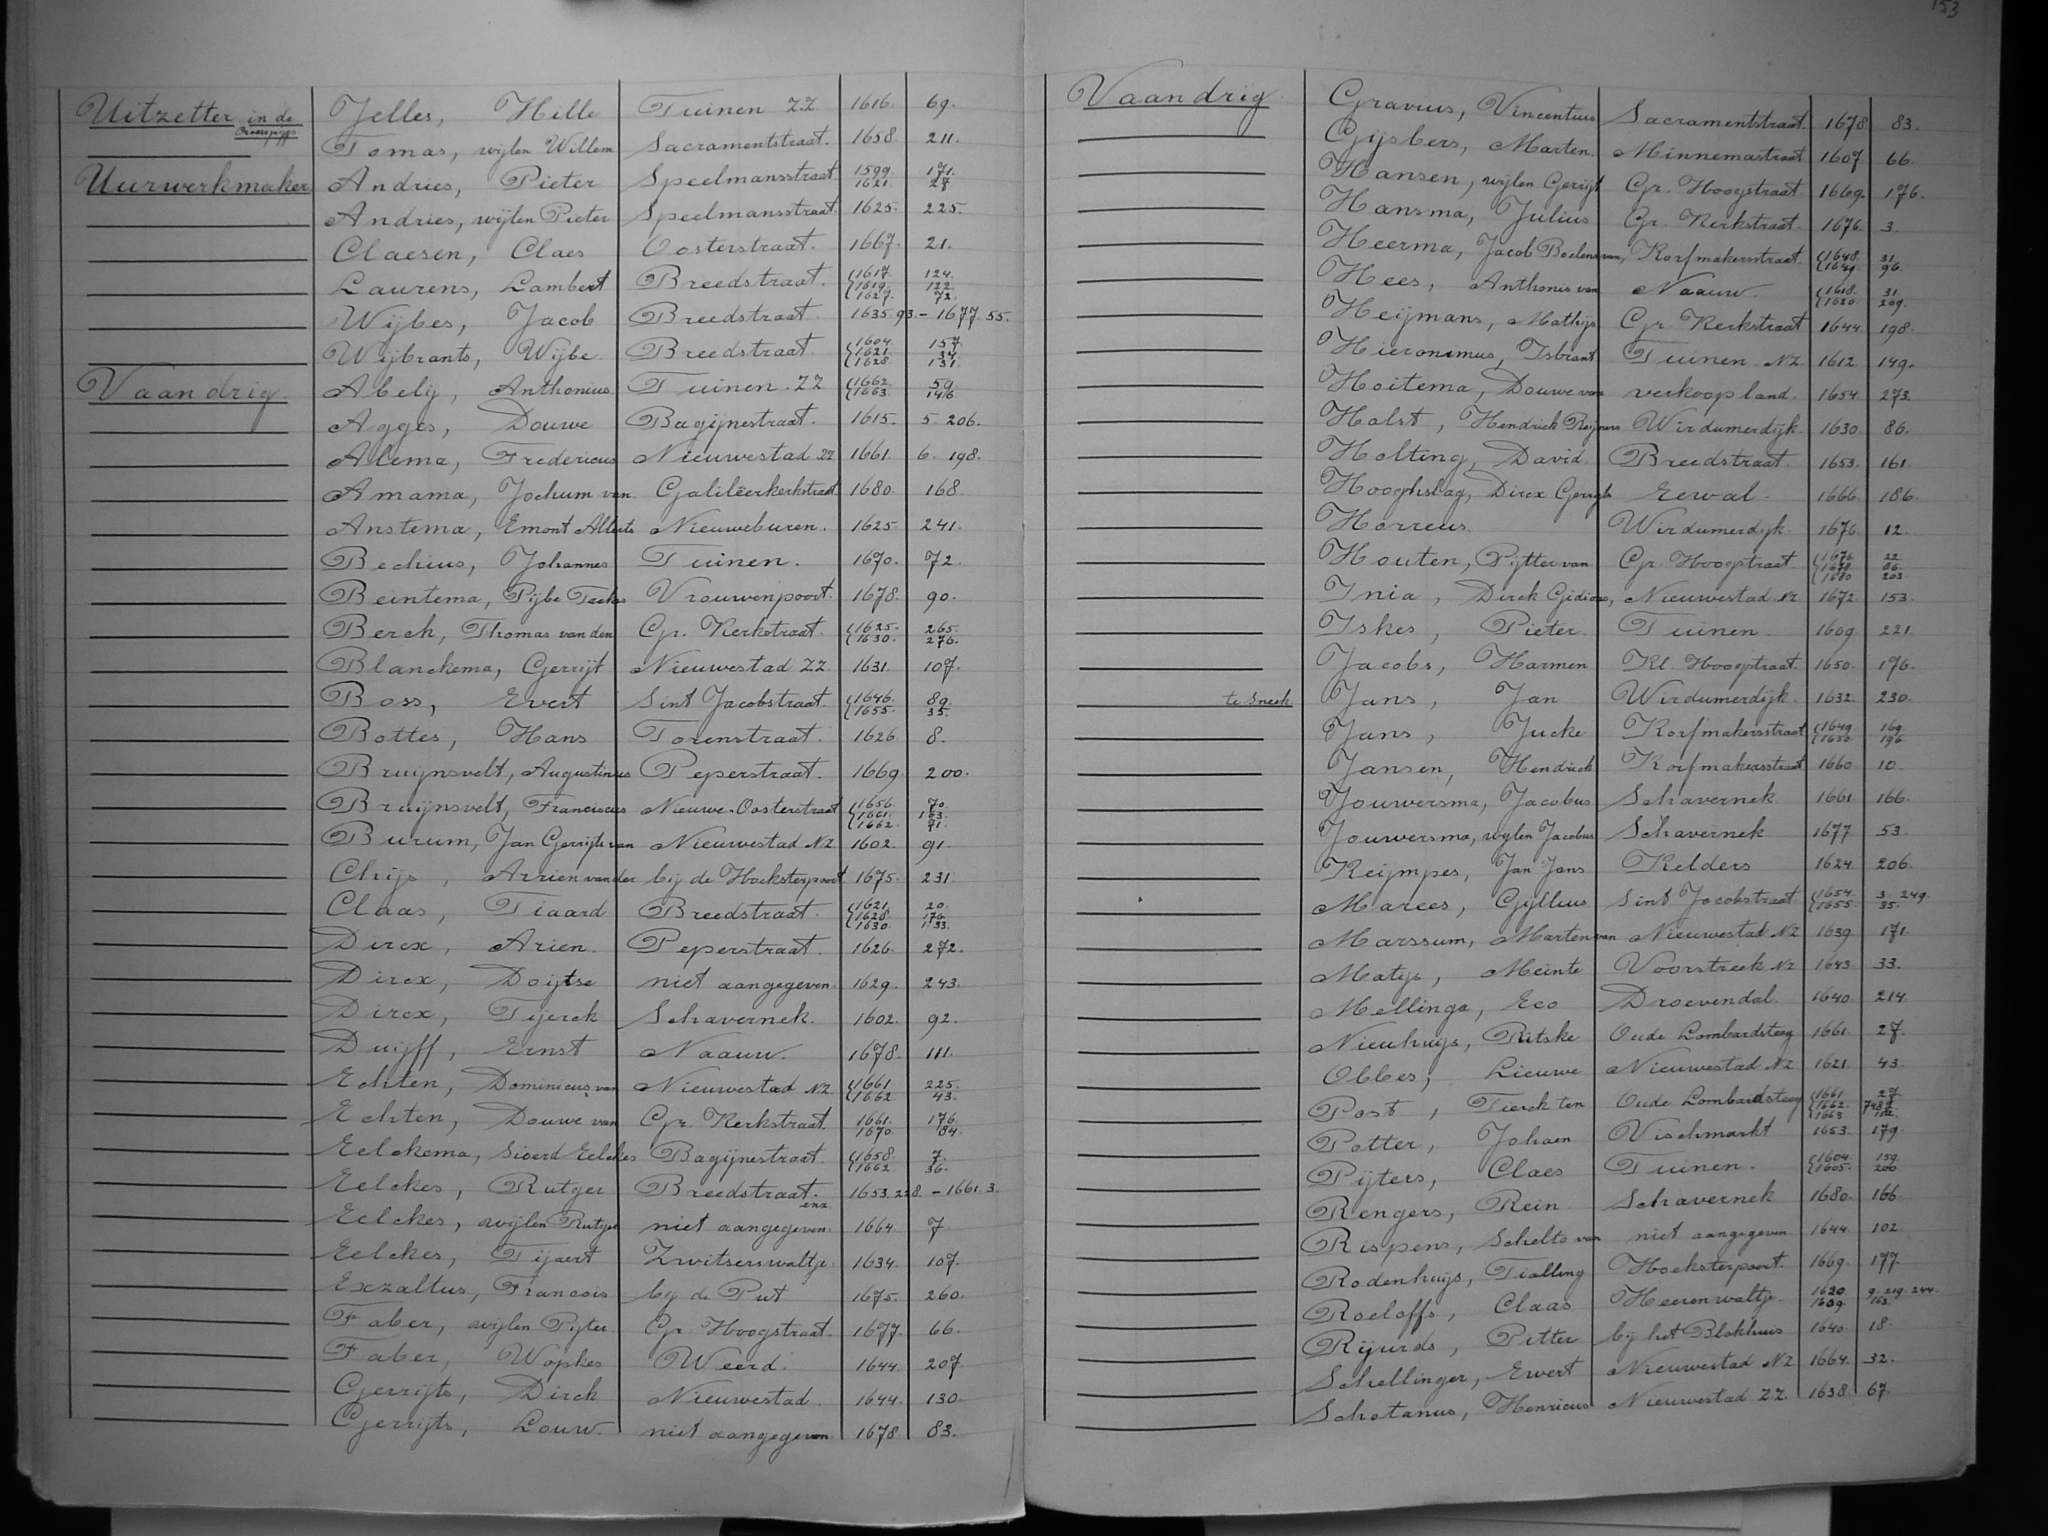 153
Uitzetter in de Jelles, Hille Tuinen ZZ 1616. 69.
Tomas, wijlen Willem Sacramentstraat. 1658. 211.
Uurwerkmaker Andries, Pieter Speelmansstraat 1599. 171.
1621. 27
Andries, wijlen Pieter Speelmansstraat. 1625. 225.
Claesen, Claes Oosterstraat. 1667. 21.
Laurens, Lambert Breedstraat. 1617. 124.
1619. 122.
1627. 72.
Wijbes, Jacob Breedstraat. 1635. 93. - 1677. 55.
Wijbrants, Wijbe Breedstraat. 1604. 157.
1621. 34.
1628. 131.
Vaandrig Abelij, Anthonius Tuinen. ZZ 1662. 59.
1663. 146.
Agges, Douwe Bagijnestraat. 1615. 5. 206.
Alema, Fredericus Nieuwestad ZZ 1661. 6. 198.
Amama, Jochum van Galileërkerkstraat 1680. 168.
Anstema, Emont Alberts Nieuweburen. 1625. 241.
Bechius, Johannes Tuinen. 1670. 72.
Beintema, Pijbe Taekes Vrouwenpoort. 1678. 90.
Berch, Thomas van den Gr. Kerkstraat. 1625. 265.
1630. 276.
Blanckema, Gerrijt Nieuwestad ZZ 1631. 107.
Boss, Evert Sint Jacobstraat. 1646. 89.
1655. 35.
Bottes, Hans Torenstraat. 1626. 8.
Bruijnsvelt, Augustinus Peperstraat. 1669. 200.
Bruijnsvelt, Franciscus Nieuwe-Oosterstraat 1656. 70.
1661. 163.
1662. 71.
Burum, Jan Gerrijts van Nieuwestad NZ 1602. 91.
Chijs, Arrien van der bij de Hoeksterpoort 1675. 231.
Claas, Tiaard Breedstraat. 1621. 20.
1628. 176.
1630. 133.
Dircx, Arien. Peperstraat. 1626. 272.
Dircx, Doijtse niet aangegeven. 1629. 243.
Dircx, Tijerck Schavernek. 1602. 92.
Duijff, Ernst Naauw. 1678. 111.
Echten, Dominicus van Nieuwestad NZ 1661. 225.
1662 43.
Echten, Douwe van Gr. Kerkstraat. 1661. 176.
1670. 84.
Eelckema, Sioerd Eelckes Bagijnestraat. 1658. 7.
1662. 36.
Eelckes, Rutger Breedstraat. 1653. 228. - 1661. 3.
enz.
Eelckes, wijlen Rutger niet aangegeven. 1664. 7
Eelckes, Tijaert Zwitserswaltje 1634. 107.
Exzaltus, Francois bij de Put 1675. 260.
Faber, wijlen Pijter Gr. Hoogstraat. 1677. 66.
Faber, Wopkes Weerd. 1644. 207
Gerrijts, Dirck Nieuwestad. 1644. 130.
Gerrijts, Louw. niet aangegeven. 1678 83.
Vaandrig Gravius, Vincentius Sacramentstraat. 1678 83.
Gijsbers, Marten. Minnemastraat 1607 66.
Hansen, wijlen Gerrijt Gr. Hoogstraat. 1669. 176.
Hansma, Julius Gr. Kerkstraat. 1676. 3.
Heerma, Jacob Boelens van, Korfmakersstraat. 1648. 31.
1649. 96.
Hees, Anthonis van Naauw. 1618. 31.
1620. 209.
Heijmans, Mathijs Gr. Kerkstraat 1644. 198.
Hieronimus, Isbrant Tuinen NZ 1612. 149.
Hoitema, Douwe van verkoop land. 1654. 273.
Holst, Hendrick Reijners Wirdumerdijk. 1630. 86.
Holting, David. Breedstraat. 1653. 161.
Hooghslag, Dircx Gerryts Eewal. 1666. 186.
Horreus. Wirdumerdijk. 1676. 12.
Houten, Pijtter van Gr. Hoogstraat. 1676. 22.
1678. 86.
1680 203
Inia, Dirck Gidions, Nieuwestad NZ 1672. 153.
Iskes, Pieter Tuinen. 1609. 221.
Jacobs, Harmen Kl. Hoogstraat. 1650. 176.
te Sneek Jans, Jan Wirdumerdijk. 1632. 230.
Jans, Jucke Korfmakersstraat 1649. 169.
1650. 196.
Jansen, Hendrick Korfmakersstraat 1660. 10.
Jouwersma, Jacobus Schavernek 1661. 166.
Jouwersma, wylen Jacobus Schavernek 1677 53.
Keijmpes, Jan Jans Kelders 1624. 206.
Marees, Gyllius Sint Jacobstraat 1654. 3. 249.
1655 35.
Marssum, Marten van Nieuwestad NZ 1639. 171.
Matijs, Meinte Voorstreek NZ 1643. 33.
Mellinga, Eco Droevendal. 1640. 214.
Nieuhuijs, Ritske Oude Lombardsteeg 1661. 27.
Obbes, Lieuwe Nieuwestad NZ 1621. 43.
Post, Tierck ten Oude Lombardsteeg 1661. 27.
1662.
1663.
Potter, Johaen Vischmarkt 1653. 179.
Pijters, Claes Tuinen. 1604. 159.
1605. 200.
Rengers, Rein Schavernek 1680. 166.
Rispens, Schelte van niet aangegeven 1644. 102.
Rodenhuijs, Tialling Hoeksterpoort. 1669. 177.
Roeloffs, Claas Heerenwaltje 1620. 9. 219. 244.
1609. 163.
Rijurds, Petter bij het Blokhuis 1640. 18.
Schellinger, Ewert Nieuwestad NZ 1664. 32.
Schotanus, Henricus Nieuwestad ZZ. 1638. 67.